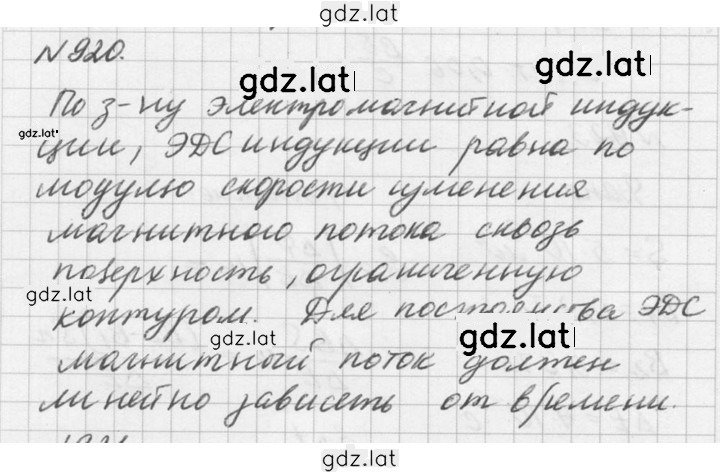 gdz.lat
№920.
gdz.lat
gdz.lat
По з-ну электромагнитной индук-
gdz.lat
ции, ЭДС индукции равна по
модулю скорости изменения
магнитного потока сквозь
поверхность, ограниченную
gdz.lat
контуром. Для постоянства ЭДС
gdz.lat
gdz.lat
магнитный поток должен
линейно зависеть от времени.
gdz.lat